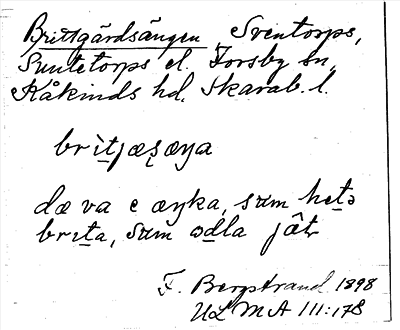 Brittgärdsängen Sventorps,
Suntetorps el. Forsby sn,
Kåkinds hd. Skarab. l.
brìtjæʂæŋa
dæ va e æŋka, sum hetə
brıta, sum ɔdla jât
F. Bergstrand 1898
ULMA 111:178